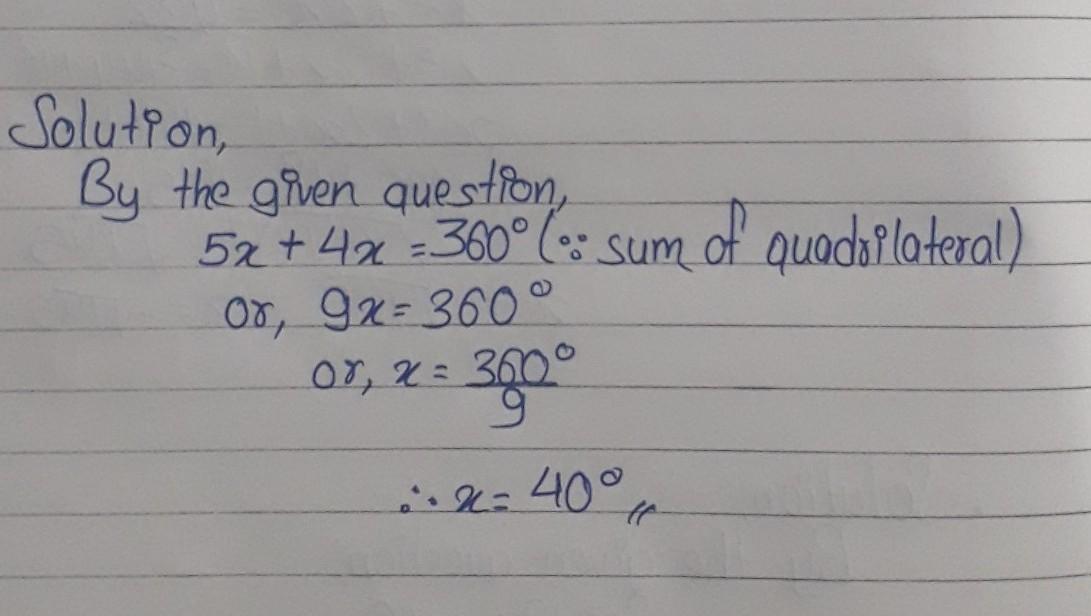 Solution,
By the given question,
5x + 4x = 360° (∵ sum of quadrilateral)
or, 9x = 360°
or, x = 360°/9
∴ x = 40°〃